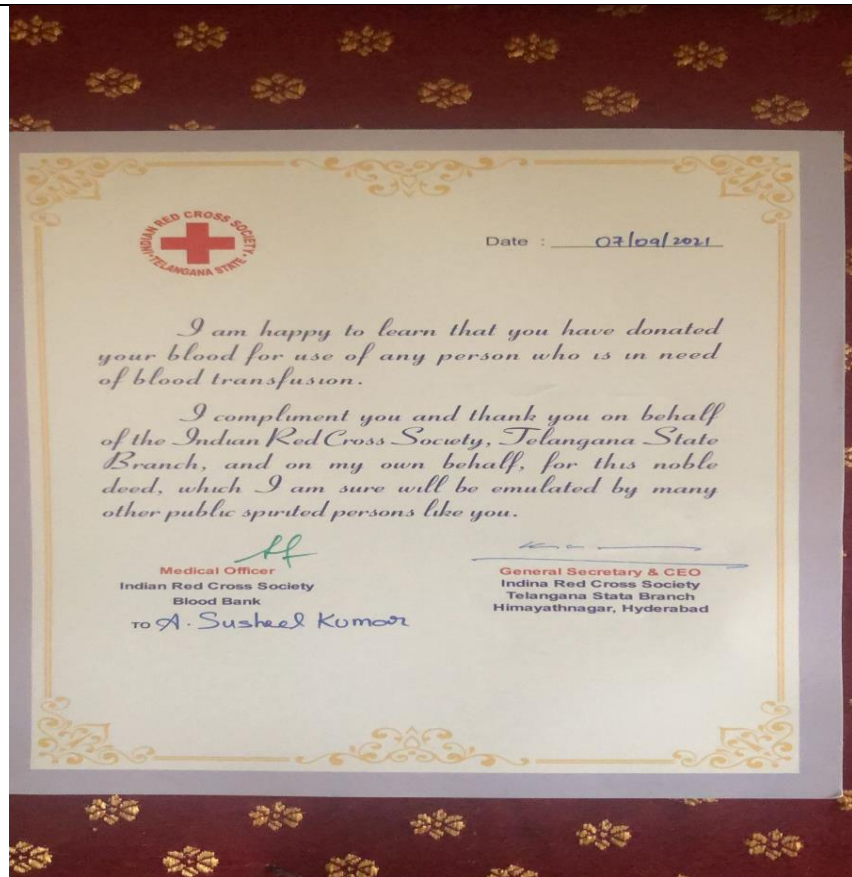 INDIAN RED CROSS SOCIETY
TELANGANA STATE
Date : 07/09/2021
I am happy to learn that you have donated
your blood for use of any person who is in need
of blood transfusion.
I compliment you and thank you on behalf
of the Indian Red Cross Society, Telangana State
Branch, and on my own behalf, for this noble
deed, which I am sure will be emulated by many
other public spirited persons like you.
Medical Officer
Indian Red Cross Society
Blood Bank
TO A. Susheel Kumar
General Secretary & CEO
Indina Red Cross Society
Telangana Stata Branch
Himayathnagar, Hyderabad